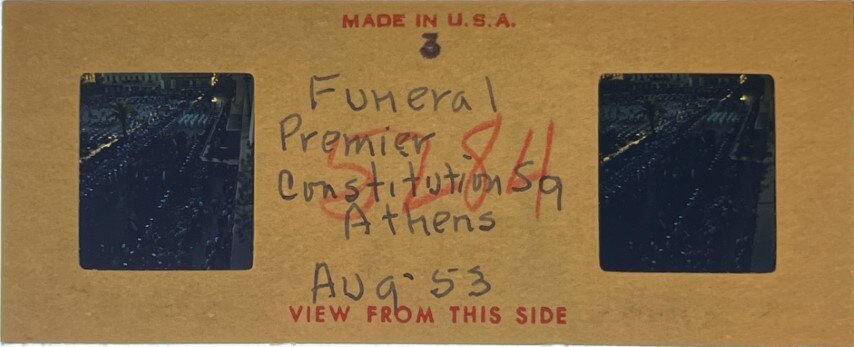 MADE IN U.S.A.
3
Funeral
Premier
5284
Constitution Sq
Athens
Aug- 53
VIEW FROM THIS SIDE